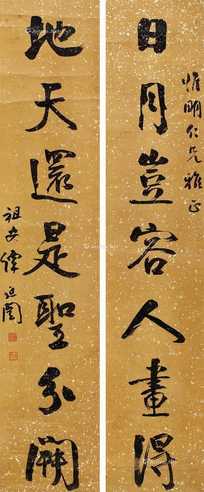 日月豈容人畫得
惟明仁兄雅正
地天還是聖分開
祖安譚延闓